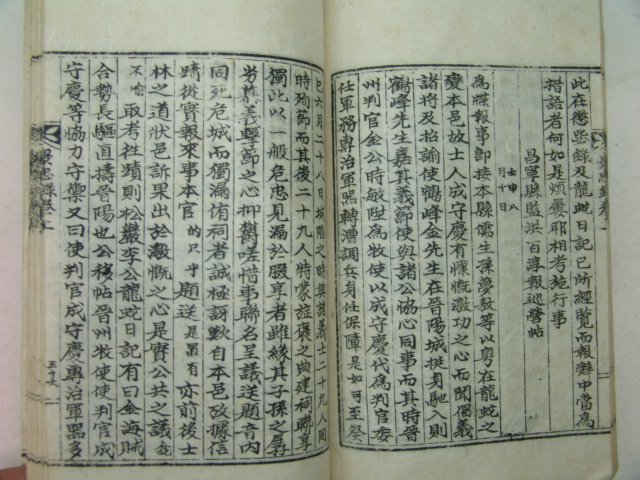 此在懲毖錄及龍蛇日記已所經覽而報辭中當爲
措語者何如是煩屢耶相考施行事
昌寧縣監洪百淳報巡營帖
壬申八
月十日
爲牒報事節接本縣儒生孫夢敖等以粤在龍蛇之
變本邑故士人成守慶有慷慨激功之心而聞倡義
諸將及招諭使鶴峰金先生在晉陽城挺身馳入則
鶴峰先生嘉其義節使與諸公協心同事而其時晉
州判官金公時敏陞爲牧使以成守慶代爲判官委
任軍務專治軍器轉漕調兵身任保障是如可至癸
巳六月二十八日城陷之時與諸義士二十九人同
時殉節而其後二十九人特蒙旌褒之典建祠聯享
獨此以一般危忠見漏於腏享者雖緣其子孫之孱
劣慕義擧節之心抑鬱嗟惜事聯名呈議送題音內
同死危城而獨漏侑祠者誠極訝歎自本邑攷據信
蹟從實報來事本官
的只
守
題送
是置有
亦前後士
林之道狀邑訴果出於激慨之心是實公共之議
不喩
取考往蹟則松巖李公龍蛇日記有曰金海賊
合勢長驅直擣晉陽也公移帖晉州牧使使判官成
守慶等協力守禦又曰使判官成守慶專治軍器多
三十六